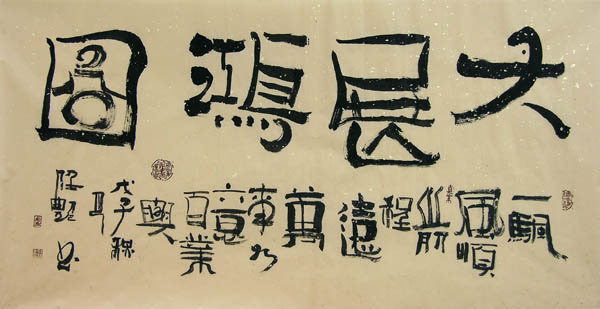 大展鴻圖
一颿風順前程遠萬事如意百業興
戊子秋